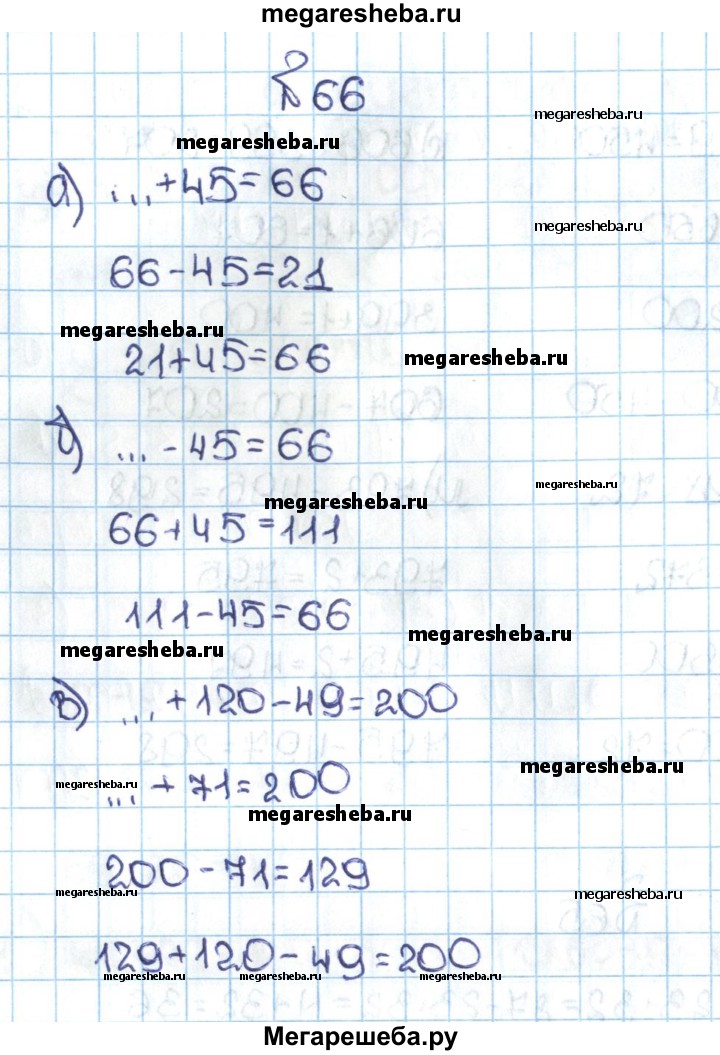 megaresheba.ru
№ 66
megaresheba.ru
megaresheba.ru
а) ...+45=66
megaresheba.ru
66-45=21
megaresheba.ru
21+45=66
megaresheba.ru
б) ...-45=66
megaresheba.ru
megaresheba.ru
66+45=111
111-45=66
megaresheba.ru
megaresheba.ru
в) ...+120-49=200
megaresheba.ru
megaresheba.ru
...+71=200
megaresheba.ru
200-71=129
megaresheba.ru
megaresheba.ru
129+120-49=200
megaresheba.ru
megaresheba.ru
megaresheba.ru
Мегарешеба.ру